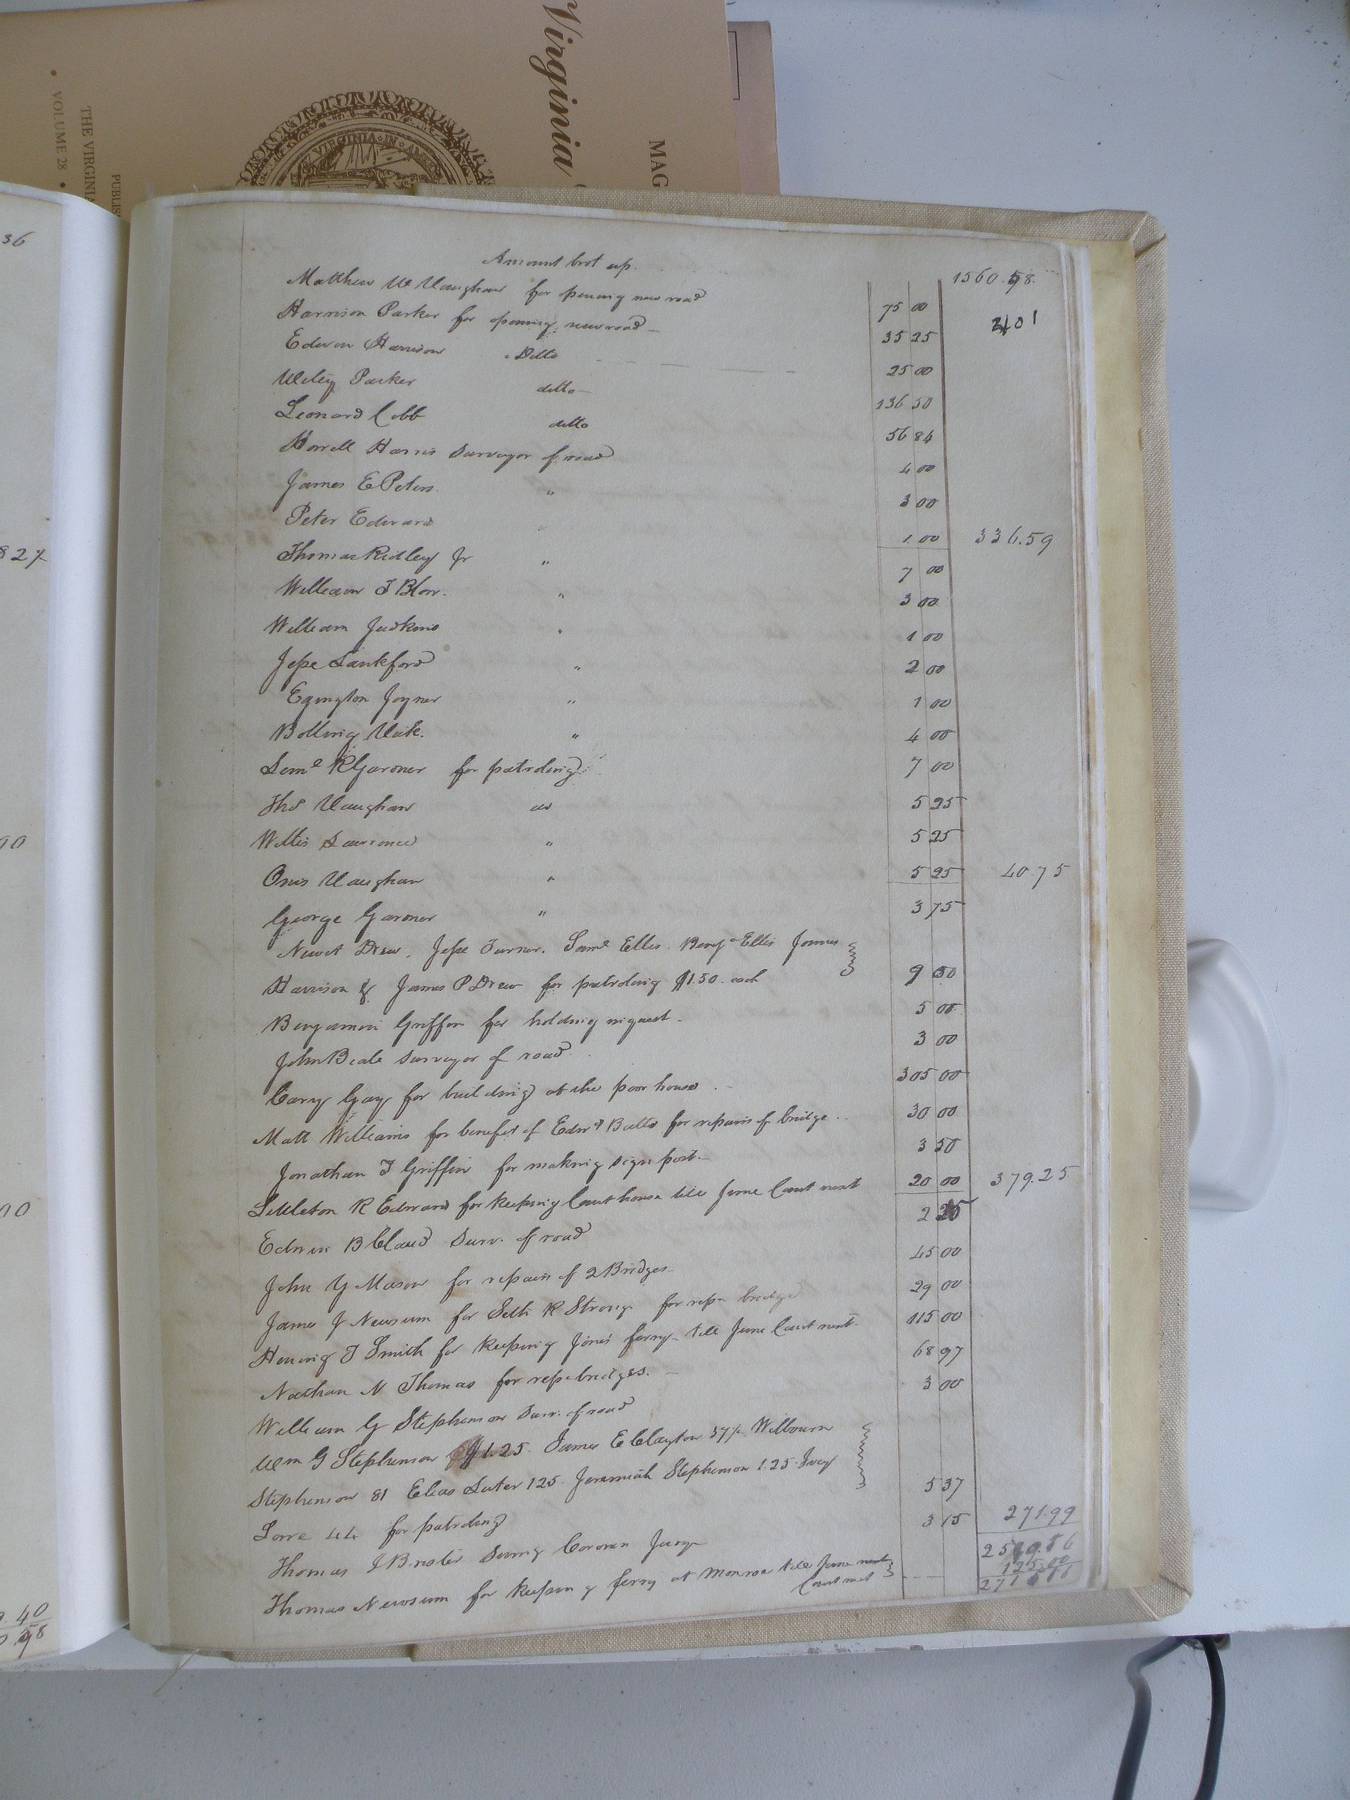 Virginia
MAG
THE VIRGINIA
VOLUME 28
PUBLIS
VIRGINIA
36
827
00
00
40
98
Amount brot up 1560.58
Matthew W Vaughan for opening new road 75 00
Harrison Parker for opening new road 35 25
Edwin Harrison Ditto 25 00
Wiley Parker ditto 136 50
Leonard Cobb ditto 56 84
Howell Harris Surveyor of road 4 00
James E Peters " 3 00
Peter Edwards 1 00 336.59
Thomas Ridley Jr " 7 00
William T Blow " 3 00
William Judkins " 1 00
Jesse Lankford " 2 00
Egington Joyner " 1 00
Bolling " 4 00
Saml R Gardner for patroling 7 00
Thos Vaughan do 5 25
Willis Lawrence " 5 25
Vaughan " 5 25 40.75
George Gardner " 3 75
Newit Drew, Jesse Turner, Saml Ellis, Benja Ellis James
Harrison & James P Drew for patroling $1.50 each 9 00
Benjamin Griffin for holding inquest 5 00
John Beale surveyor of road 3 00
Cary Gay for building at the poor house 305 00
Matt Williams for benefit of Edwd Butts for repairs of bridge 30 00
Jonathan T Griffin for making sign post 3 50
Littleton R Edwards for keeping Courthouse till June Court next 20 00 379.25
Edwin B Claud Surv. of road 2 25
John Y Mason for repairs of 2 Bridges 45 00
James J Newsum for Seth R Strong for repr bridge 29 00
Hening T Smith for keeping Jones ferry till June Court next 115 00
Nathan N Thomas for rep bridges 68 97
William G Stephenson Surv. of road 3 00
Wm G Stephenson $1.25 James E Clayton 37½ Wilbourn
Stephenson 81 Elias Luter 125 Jeremiah Stephenson 1.25
44 for patroling 5 37
Thomas J Bristir 3 15 271.99
Thomas Newsum for keeping ferry at Monroe till June next
Court next